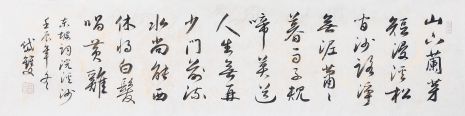 山下蘭芽
短浸溪松
间沙路淨
無泥蕭蕭
暮雨子規
啼莫道
人生無再
少门前流
水尚能西
休将白髮
唱黄雞
东坡词浣溪沙
壬辰年冬